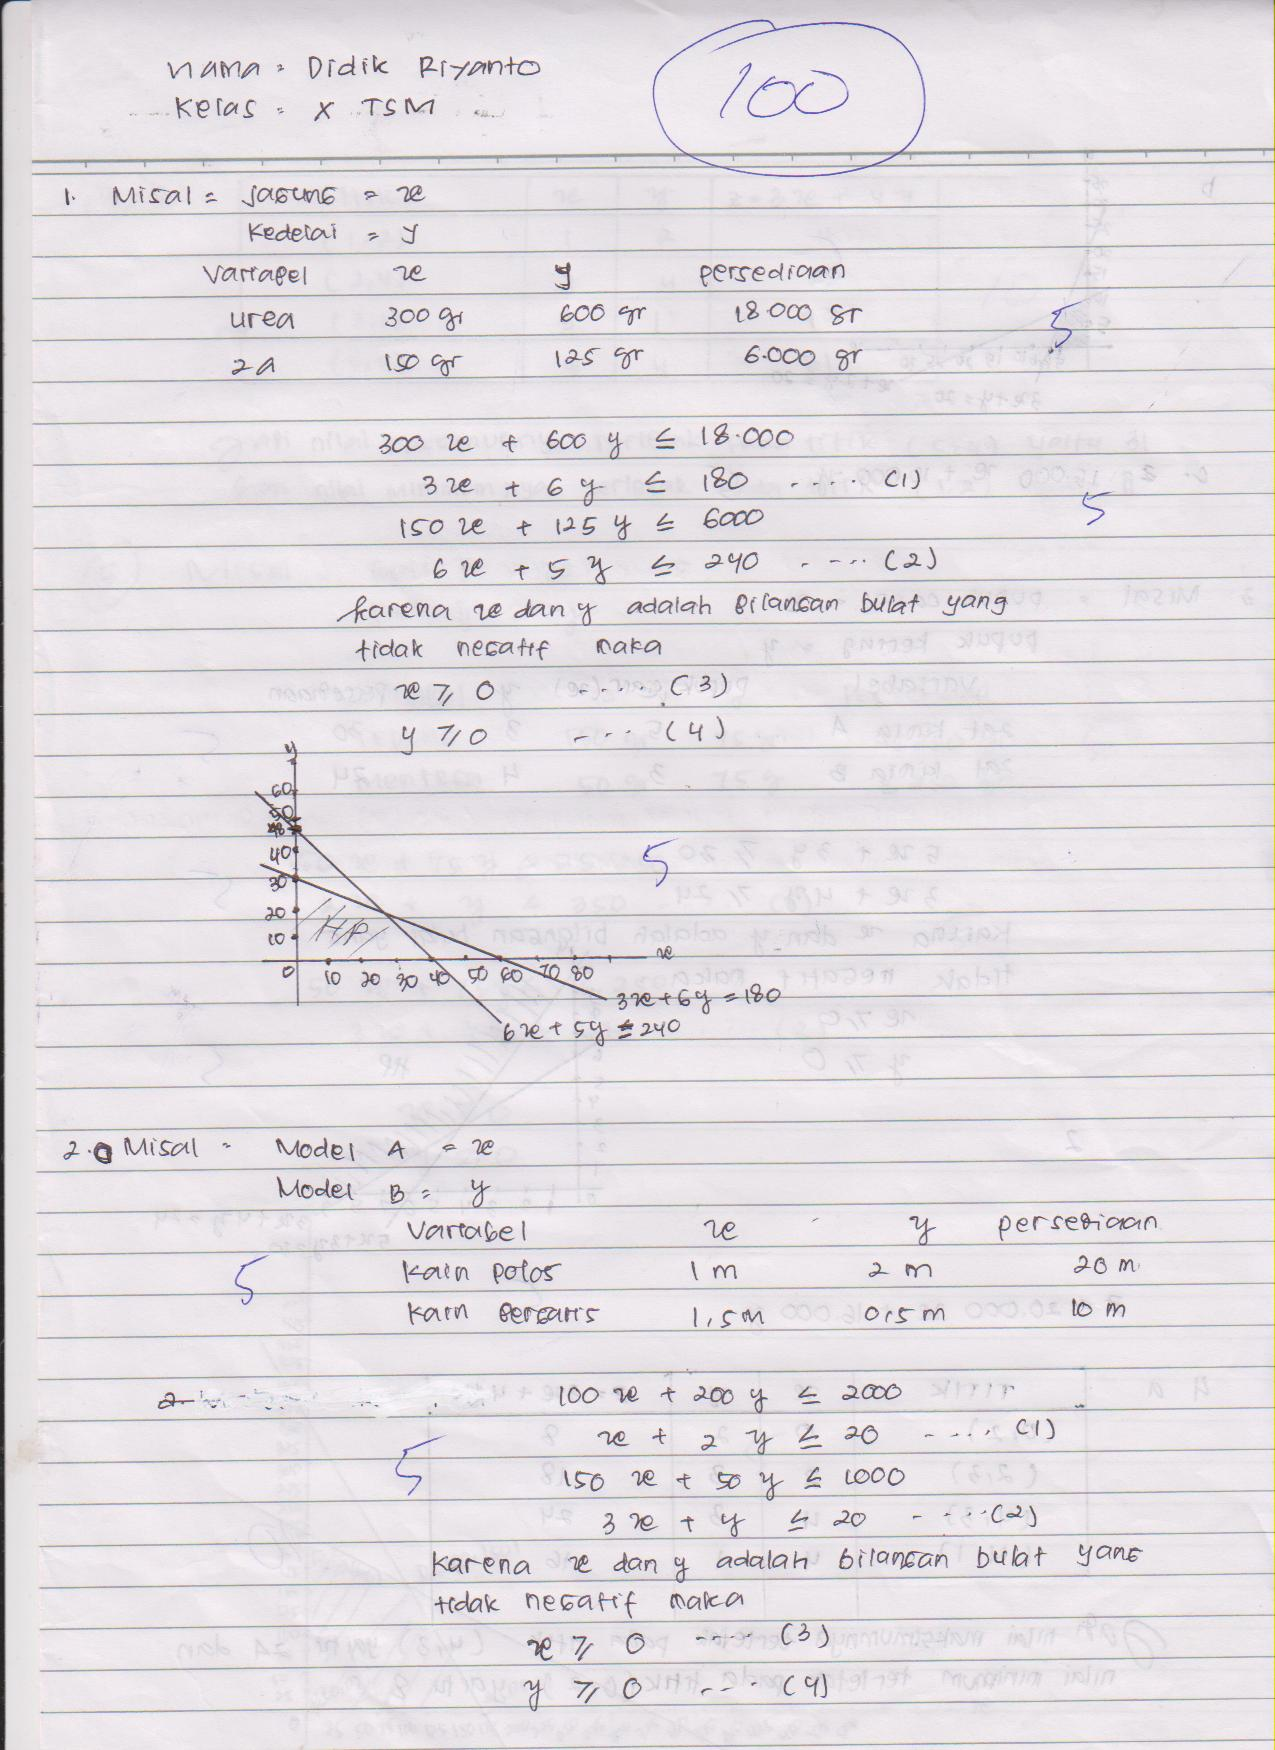 Nama = Didik Riyanto
Kelas = X TSM
100
1. Misal = Jagung = x
Kedelai = y
Variabel x y persediaan
urea 300 gr 600 gr 18.000 gr
za 150 gr 125 gr 6.000 gr
5
300 x + 600 y ≤ 18.000
3 x + 6 y ≤ 180 ..... (1)
150 x + 125 y ≤ 6000
5
6 x + 5 y ≤ 240 ..... (2)
karena x dan y adalah bilangan bulat yang
tidak negatif maka
x ≥ 0 ..... (3)
y ≥ 0 .... (4)
y
60
50
48
40
30
20
10
HP
5
x
0 10 20 30 40 50 60 70 80
3x + 6y = 180
6x + 5y ≤ 240
2. Misal = Model A = x
Model B = y
Variabel x y persediaan
Kain polos 1 m 2 m 20 m
5
Kain bergaris 1,5 m 0,5 m 10 m
2
100 x + 200 y ≤ 2000
x + 2 y ≤ 20 ..... (1)
5
150 x + 50 y ≤ 1000
3 x + y ≤ 20 ..... (2)
Karena x dan y adalah bilangan bulat yang
tidak negatif maka
x ≥ 0 .... (3)
y ≥ 0 .... (4)